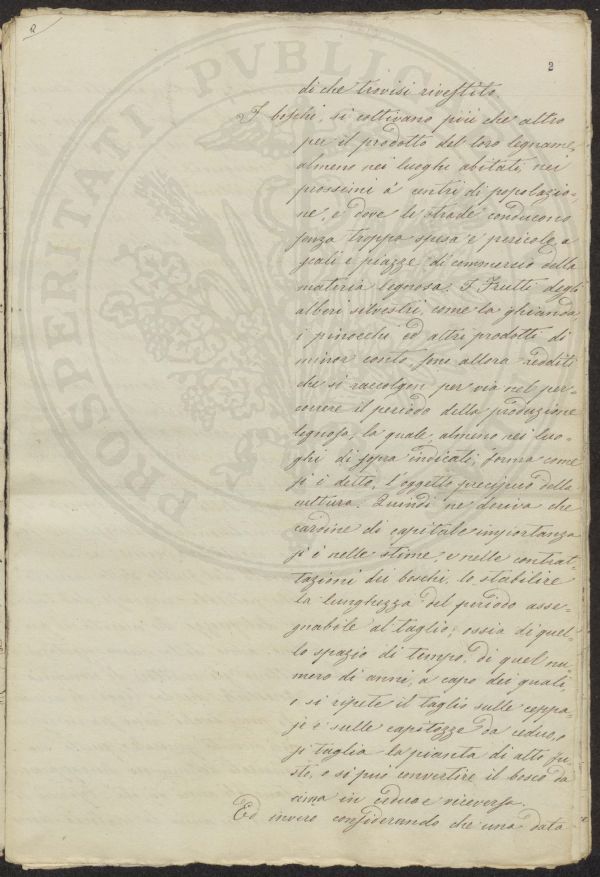 2
2
di che trovisi rivestito.
I boschi, si coltivano più che altro
per il prodotto del loro legname,
almeno nei luoghi abitati, nei
prossimi a' centri di popolazio-
ne, e dove le strade conducono
senza troppa spesa e pericolo, a
scali e piazze di commercio della
materia legnosa. I Frutti degli
alberi silvestri, come la ghianda
i pinocchi ed altri prodotti di
minor conto, sono allora redditi
che si raccolgon per via nel per-
correre il periodo della produzione
legnosa, la quale, almeno nei luo-
ghi di sopra indicati, forma come
si è detto, l'oggetto precipuo della
cultura. Quindi ne deriva che
cardine di capitale importanza
si è nelle stime, e nelle contrat-
tazioni dei boschi, lo stabilire
la lunghezza del periodo asse-
gnabile al taglio; ossia di quel-
lo spazio di tempo, di quel nu-
mero di anni, a capo dei quali,
o si ripete il taglio sulle ceppa-
je e sulle capitozze da cedue, o
si taglia la pianta di alto fu-
sto, o si può convertire il bosco da
cima in ceduo e viceversa.
Ed invero considerando che una data
PROSPERITATI PVBLIC